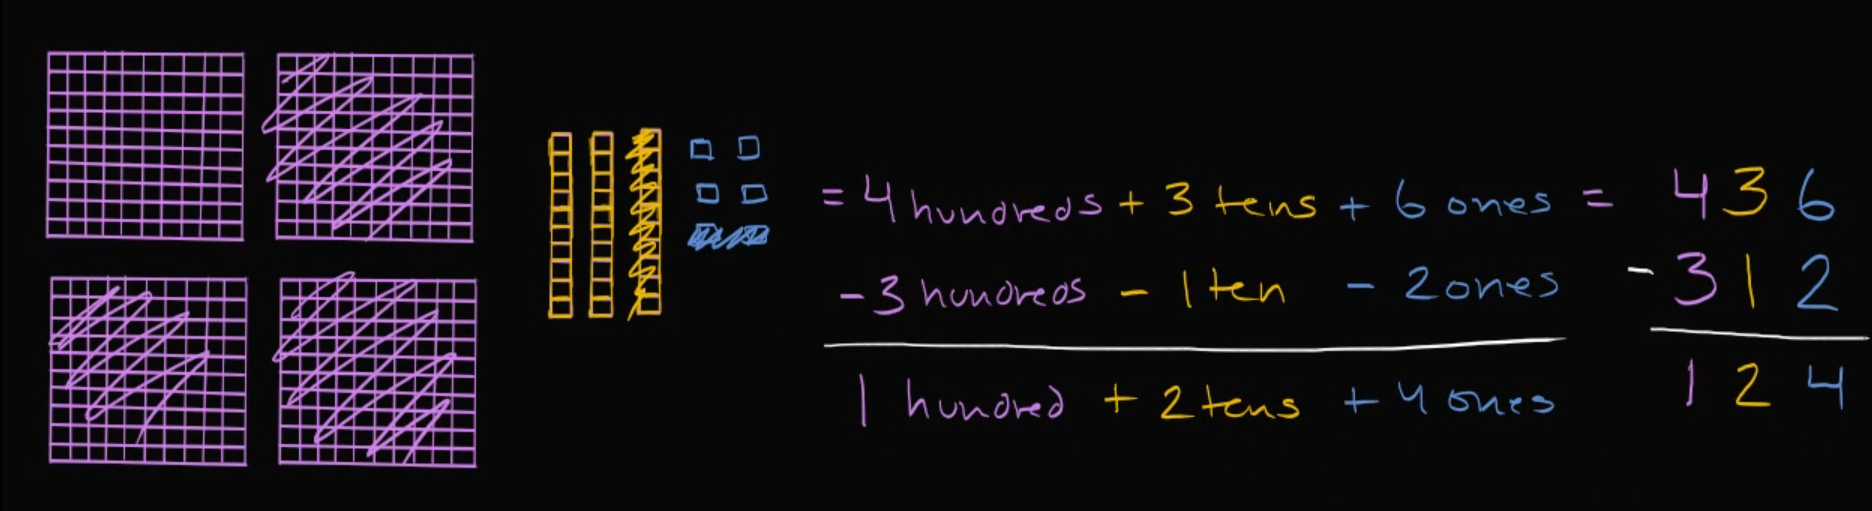 = 4 hundreds + 3 tens + 6 ones = 436
- 3 hundreds - 1 ten - 2 ones - 312
1 hundred + 2 tens + 4 ones 124